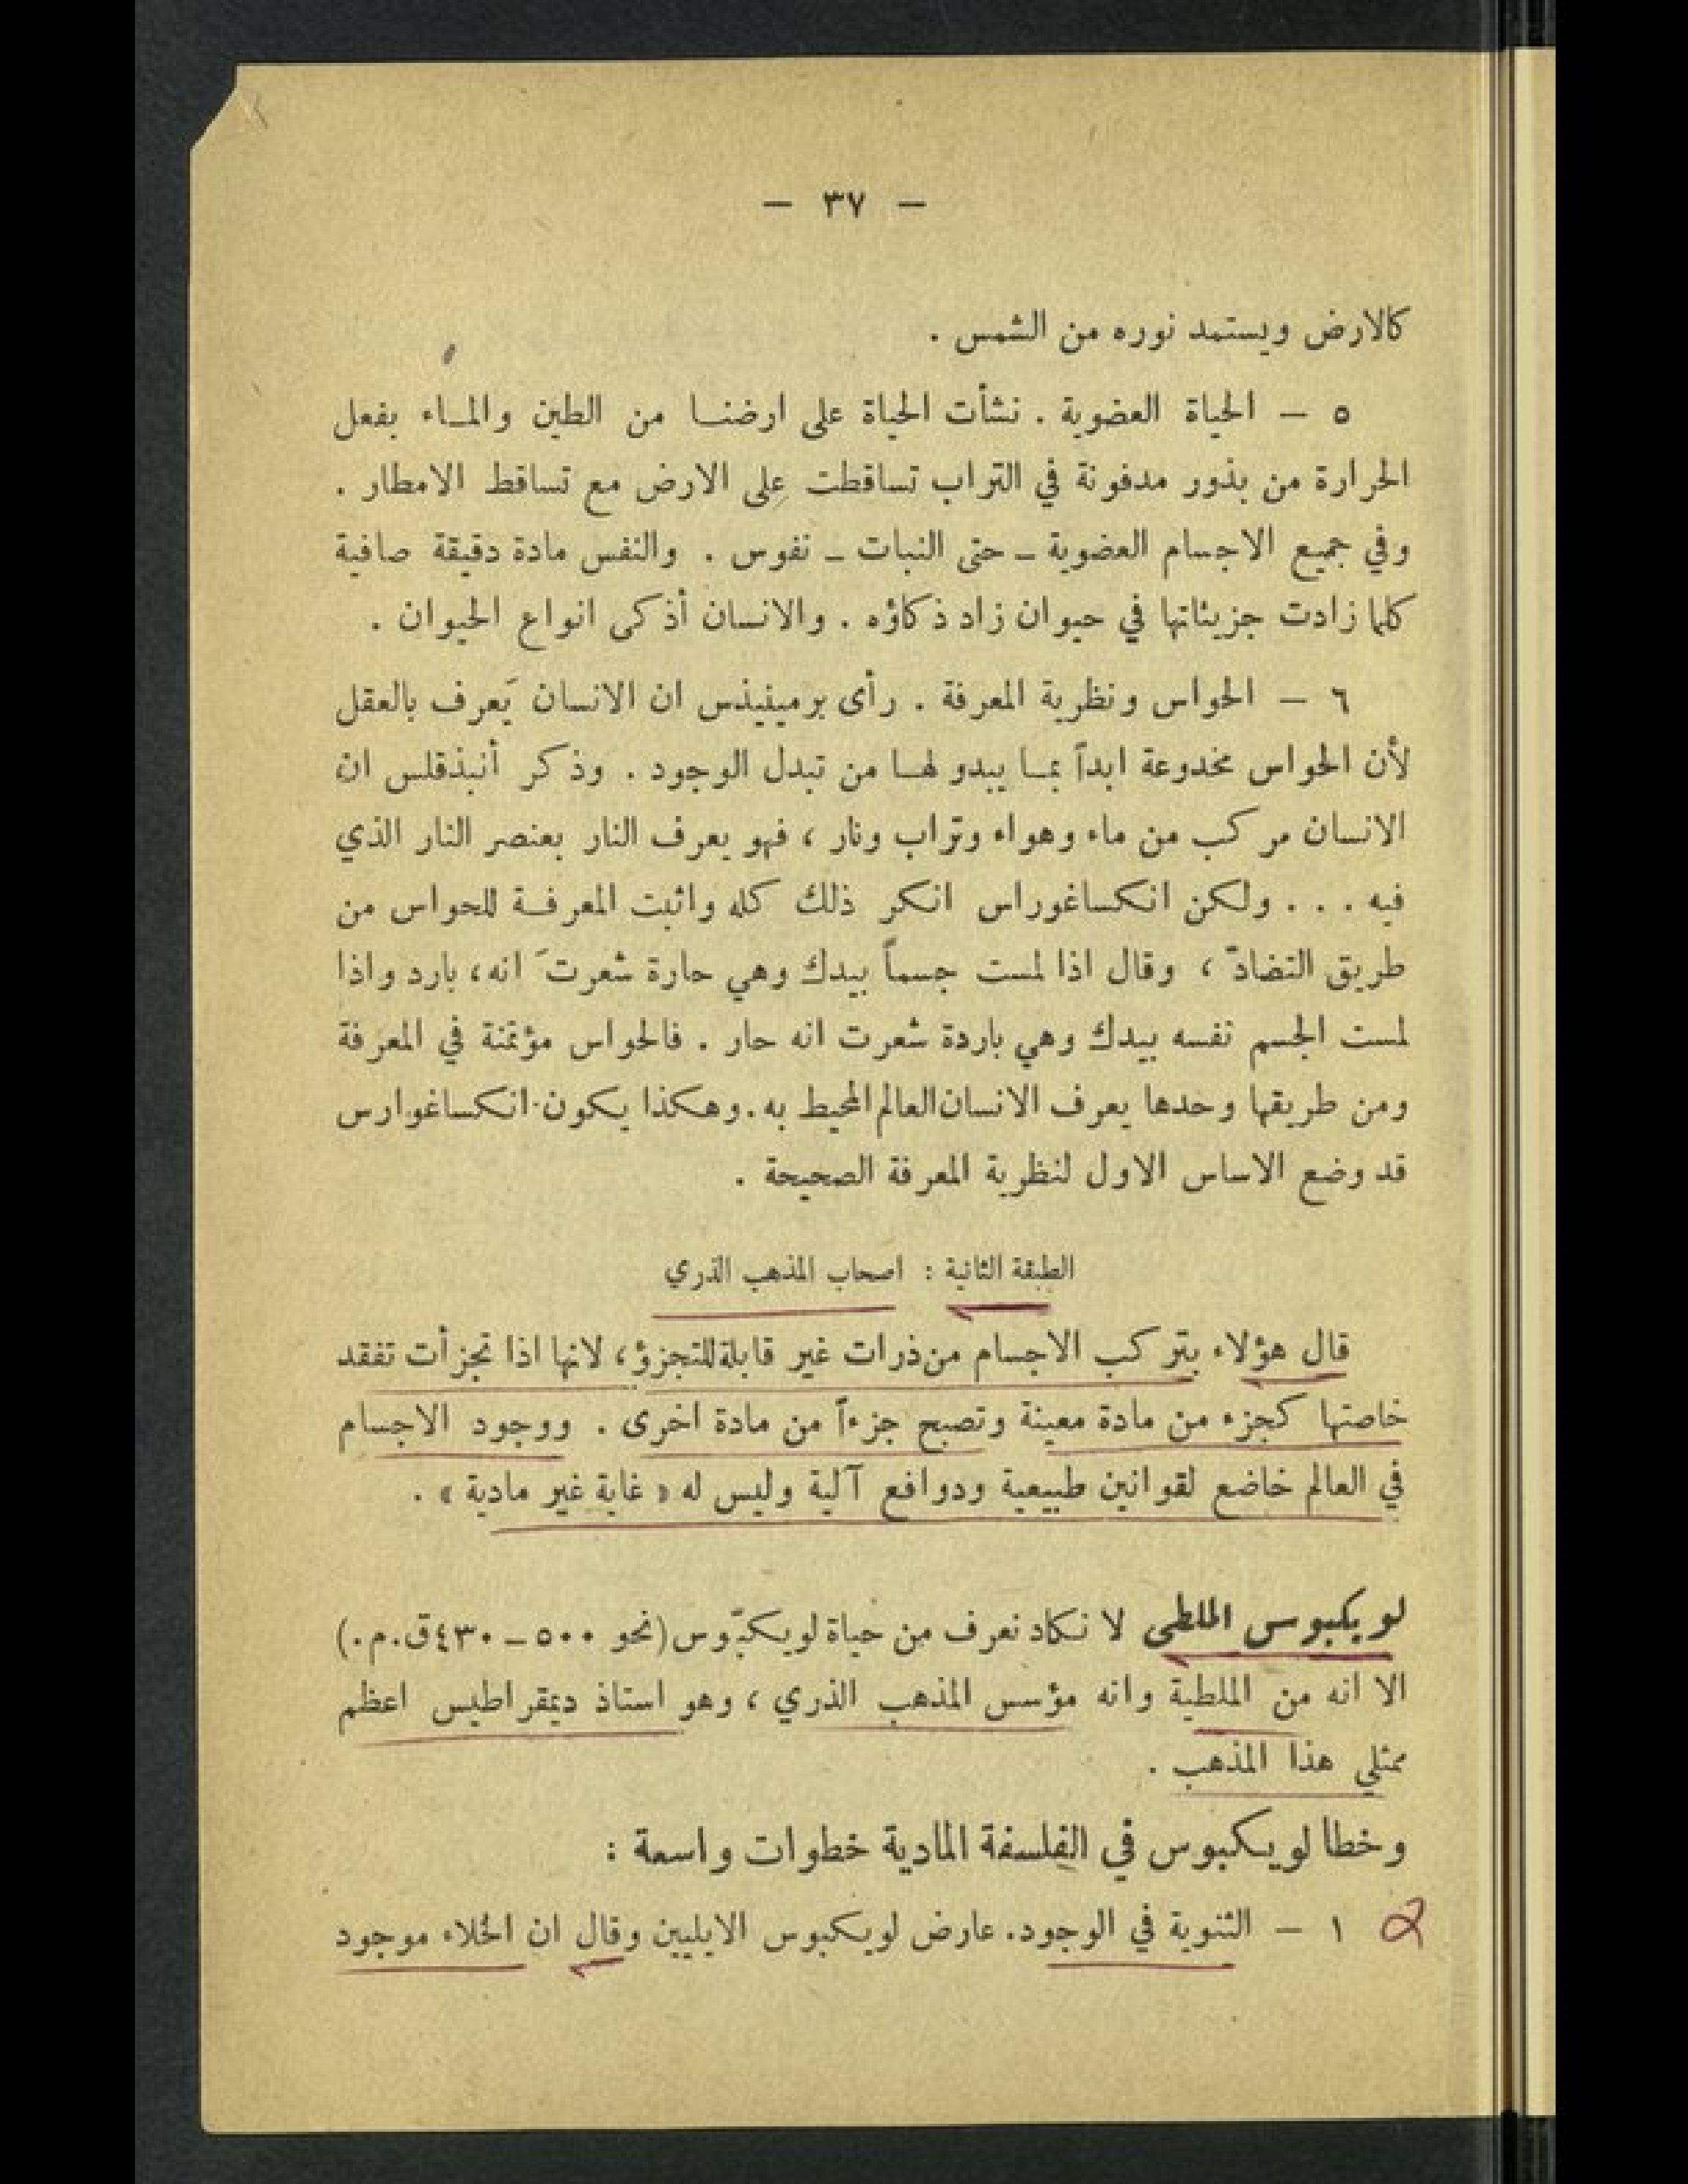 — ٣٧ —
كالارض ويستمد نوره من الشمس .
٥ — الحياة العضوية . نشأت الحياة على ارضنا من الطين والماء بفعل
الحرارة من بذور مدفونة في التراب تساقطت على الارض مع تساقط الامطار .
وفي جميع الاجسام العضوية – حتى النبات – نفوس . والنفس مادة دقيقة صافية
كلما زادت جزيئاتها في حيوان زاد ذكاؤه . والانسان أذكى انواع الحيوان .
٦ — الحواس ونظرية المعرفة . رأى برمينيذس ان الانسان يَعرف بالعقل
لأن الحواس مخدوعة ابداً بما يبدو لها من تبدل الوجود . وذكر أنبذقلس ان
الانسان مركب من ماء وهواء وتراب ونار ، فهو يعرف النار بعنصر النار الذي
فيه . . . ولكن انكساغوراس انكر ذلك كله واثبت المعرفة للحواس من
طريق التضادّ ، وقال اذا لمست جسماً بيدك وهي حارة شعرتَ انه ، بارد واذا
لمست الجسم نفسه بيدك وهي باردة شعرت انه حار . فالحواس مؤتمنة في المعرفة
ومن طريقها وحدها يعرف الانسان العالم المحيط به . وهكذا يكون انكساغوارس
قد وضع الاساس الاول لنظرية المعرفة الصحيحة .
الطبقة الثانية : اصحاب المذهب الذري
قال هؤلاء بتركب الاجسام من ذرات غير قابلة للتجزؤ ، لانها اذا تجزأت تفقد
خاصتها كجزء من مادة معينة وتصبح جزءاً من مادة اخرى . ووجود الاجسام
في العالم خاضع لقوانين طبيعية ودوافع آلية وليس له « غاية غير مادية » .
لويكبوس الملطي لا نكاد نعرف من حياة لويكبّوس (نحو ٥٠٠ – ٤٣٠ ق.م.)
الا انه من الملطية وانه مؤسس المذهب الذري ، وهو استاذ ديمقراطيس اعظم
ممثلي هذا المذهب .
وخطا لويكبوس في الفلسفة المادية خطوات واسعة :
١ — الثنوية في الوجود. عارض لويكبوس الايليين وقال ان الخلاء موجود